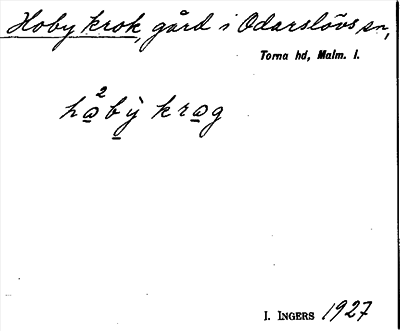 Hoby krok, gård i Odarslövs sn,
Torna hd, Malm. l.
ha̲²b̲ỳ kra̲g
I. INGERS 1927